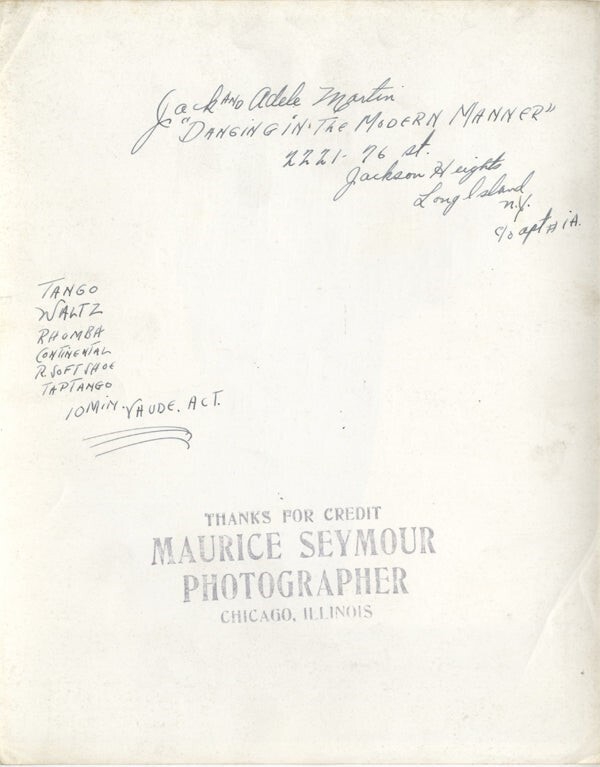 Jack AND Adele Martin
"DANCING 'N' THE MODERN MANNER"
2221- 76 st.
Jackson Heights
Long Island
N.Y.
c/o apt # 1A.
TANGO
WALTZ
RHUMBA
CONTINENTAL
R. SOFT SHOE
TAP TANGO
10 MIN. VAUDE. ACT.
THANKS FOR CREDIT
MAURICE SEYMOUR
PHOTOGRAPHER
CHICAGO, ILLINOIS